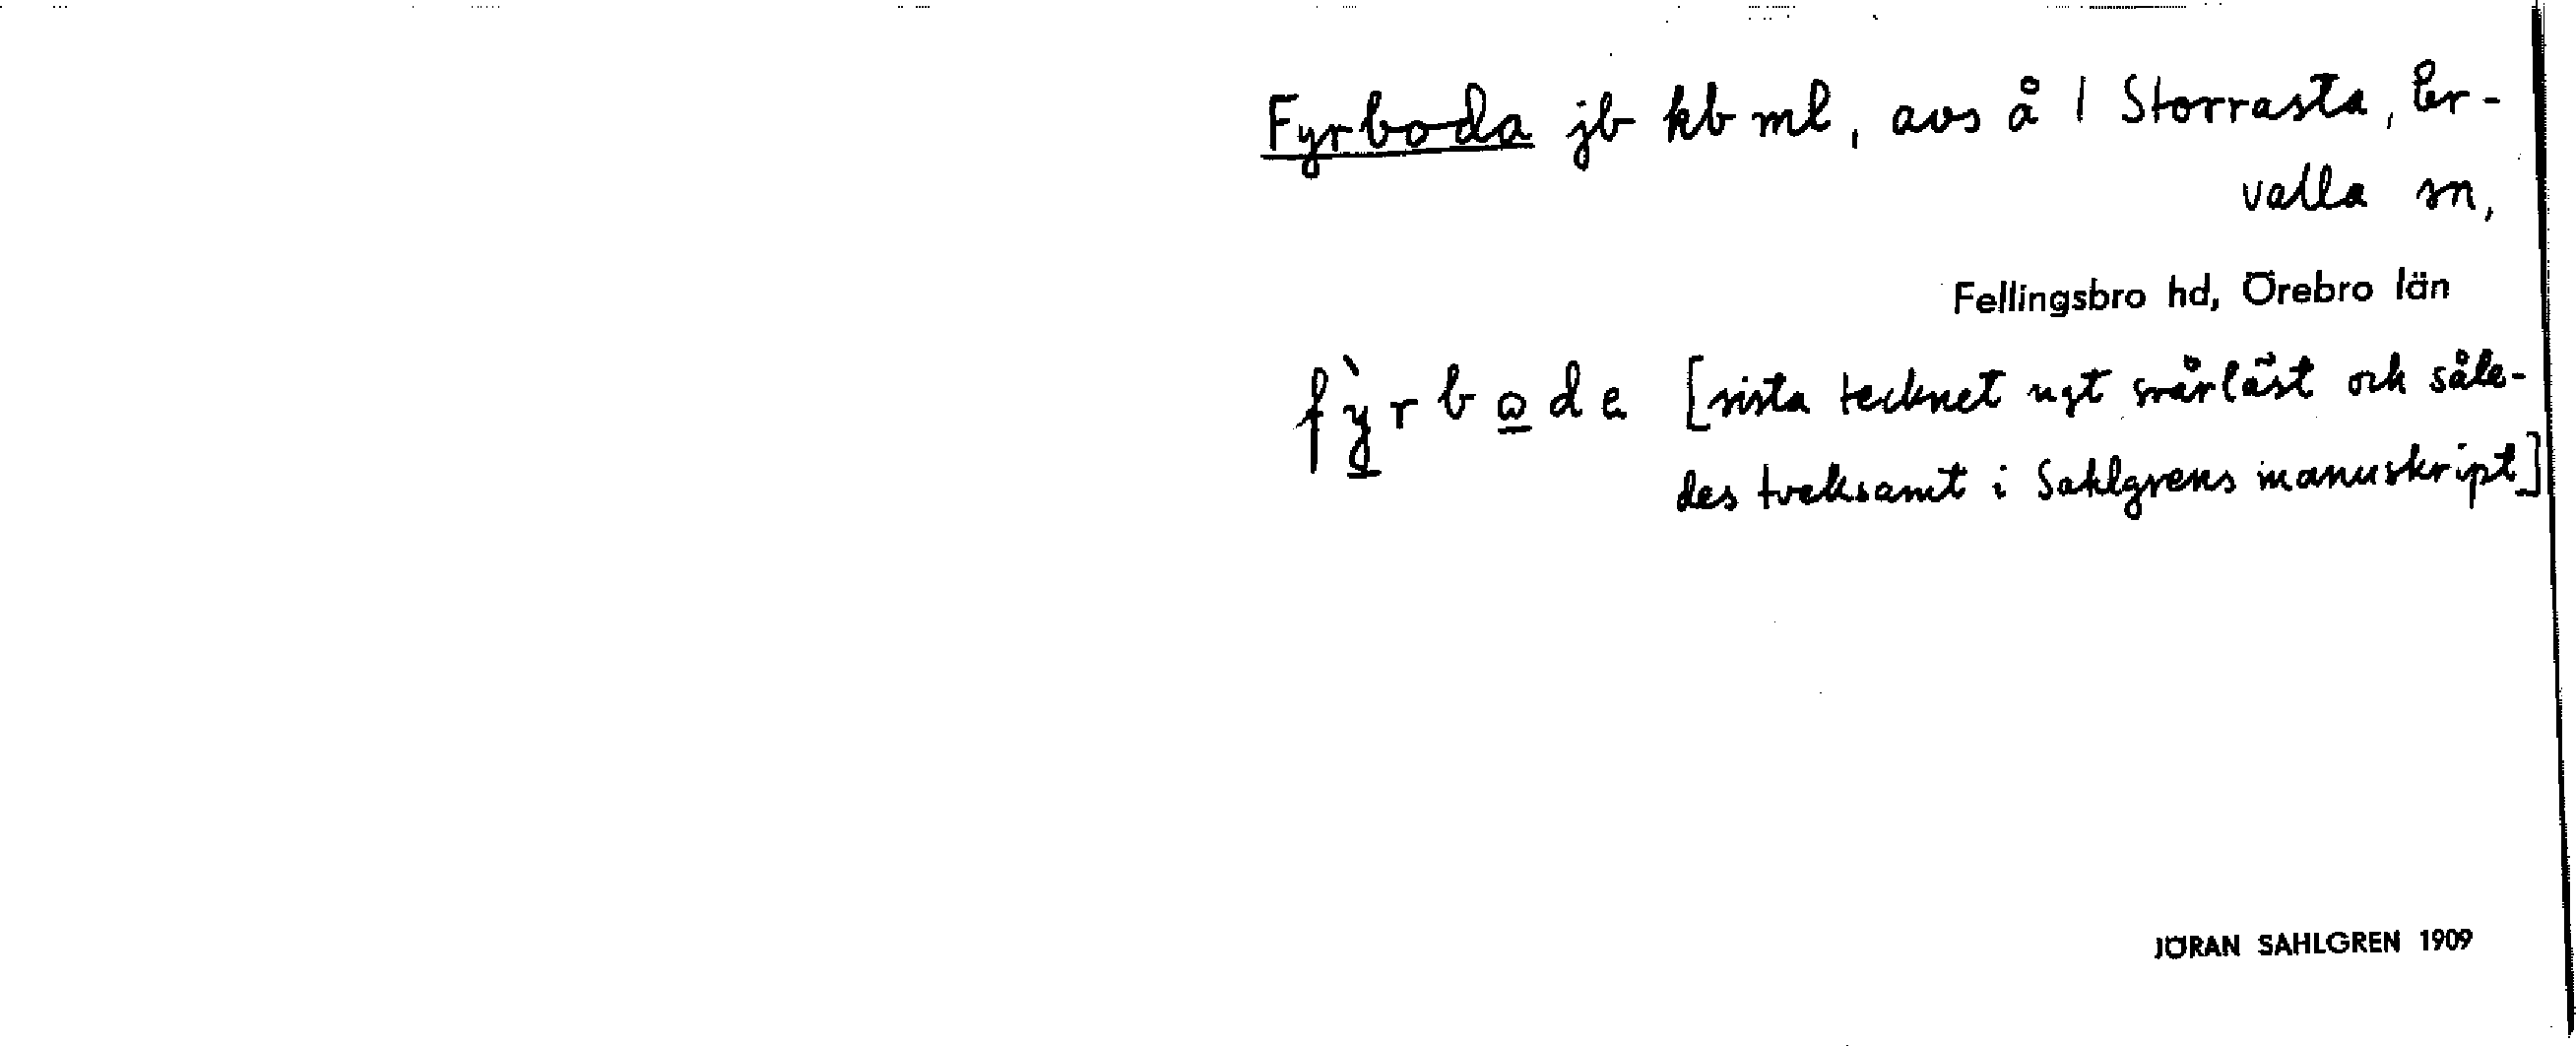 Fyrboda jb kb ml, avs å 1 Storrasta, Er-
valla sn,
Fellingsbro hd, Örebro län
fỳ̠rbo̠da [sista tecknet ngt svårläst och såle-
des tveksamt i Sahlgrens manuskript]
JÖRAN SAHLGREN 1909